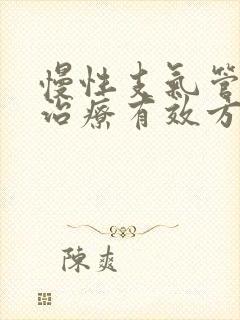 慢性支氣管
治療有效方
陳爽